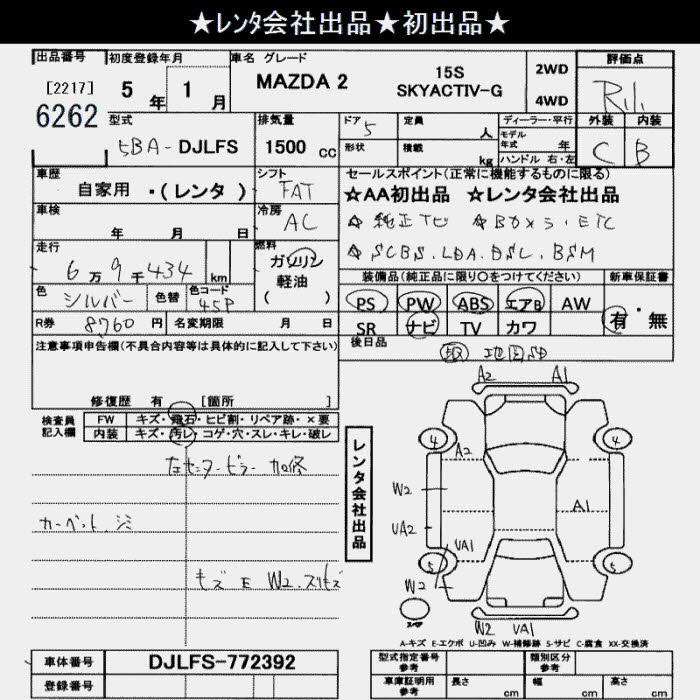 ★レンタ会社出品★初出品★
出品番号 初度登録年月 車名 グレード 評価点
[2217] 5年 1月 MAZDA 2 15S SKYACTIV-G 2WD 4WD
6262
外装 内装
C B
型式 排気量 ドア 定員 ディーラー・平行
5BA-DJLFS 1500 cc 5 人 モデル年式 年
形状 積載 kg ハンドル 右・左
車歴 シフト セールスポイント(正常に機能するものに限る)
自家用・(レンタ) FAT ★AA初出品 ☆レンタ会社出品
車検 年 月 日 冷房 AC
☆純正TV ☆Bカメラ・ETC
☆SCBS.LDA.DSL.BSM
走行 6万9千434 km 燃料 ガソリン 軽油 ( )
装備品(純正品に限り〇をつけてください) 新車保証書
色 シルバー 色替 色コード 45P
PS PW ABS エアB AW 有・無
SR ナビ TV カワ
R券 8760円 名変期限 月 日
後日品
取 地図SD
注意事項申告欄(不具合内容等は具体的に記入して下さい)
修復歴 有 [箇所 ]
検査員記入欄 FW キズ・飛石・ヒビ割・リペア跡・×要
内装 キズ・汚レ・コゲ・穴・スレ・キレ・破レ
左センターピラー加修
カーペットシミ
キズ E W2.スリキズ
レンタ会社出品
A2 A1
4 4
A2
W2 A1
UA2
VA1
5 5
W2
スペア
W2 VA1
A-キズ E-エクボ U-凹み W-補修跡 S-サビ C-腐食 XX-交換済
車体番号 DJLFS-772392
登録番号
型式指定番号 参考 類別区分 参考
車庫証明用 参考 長さ cm 幅 cm 高さ cm